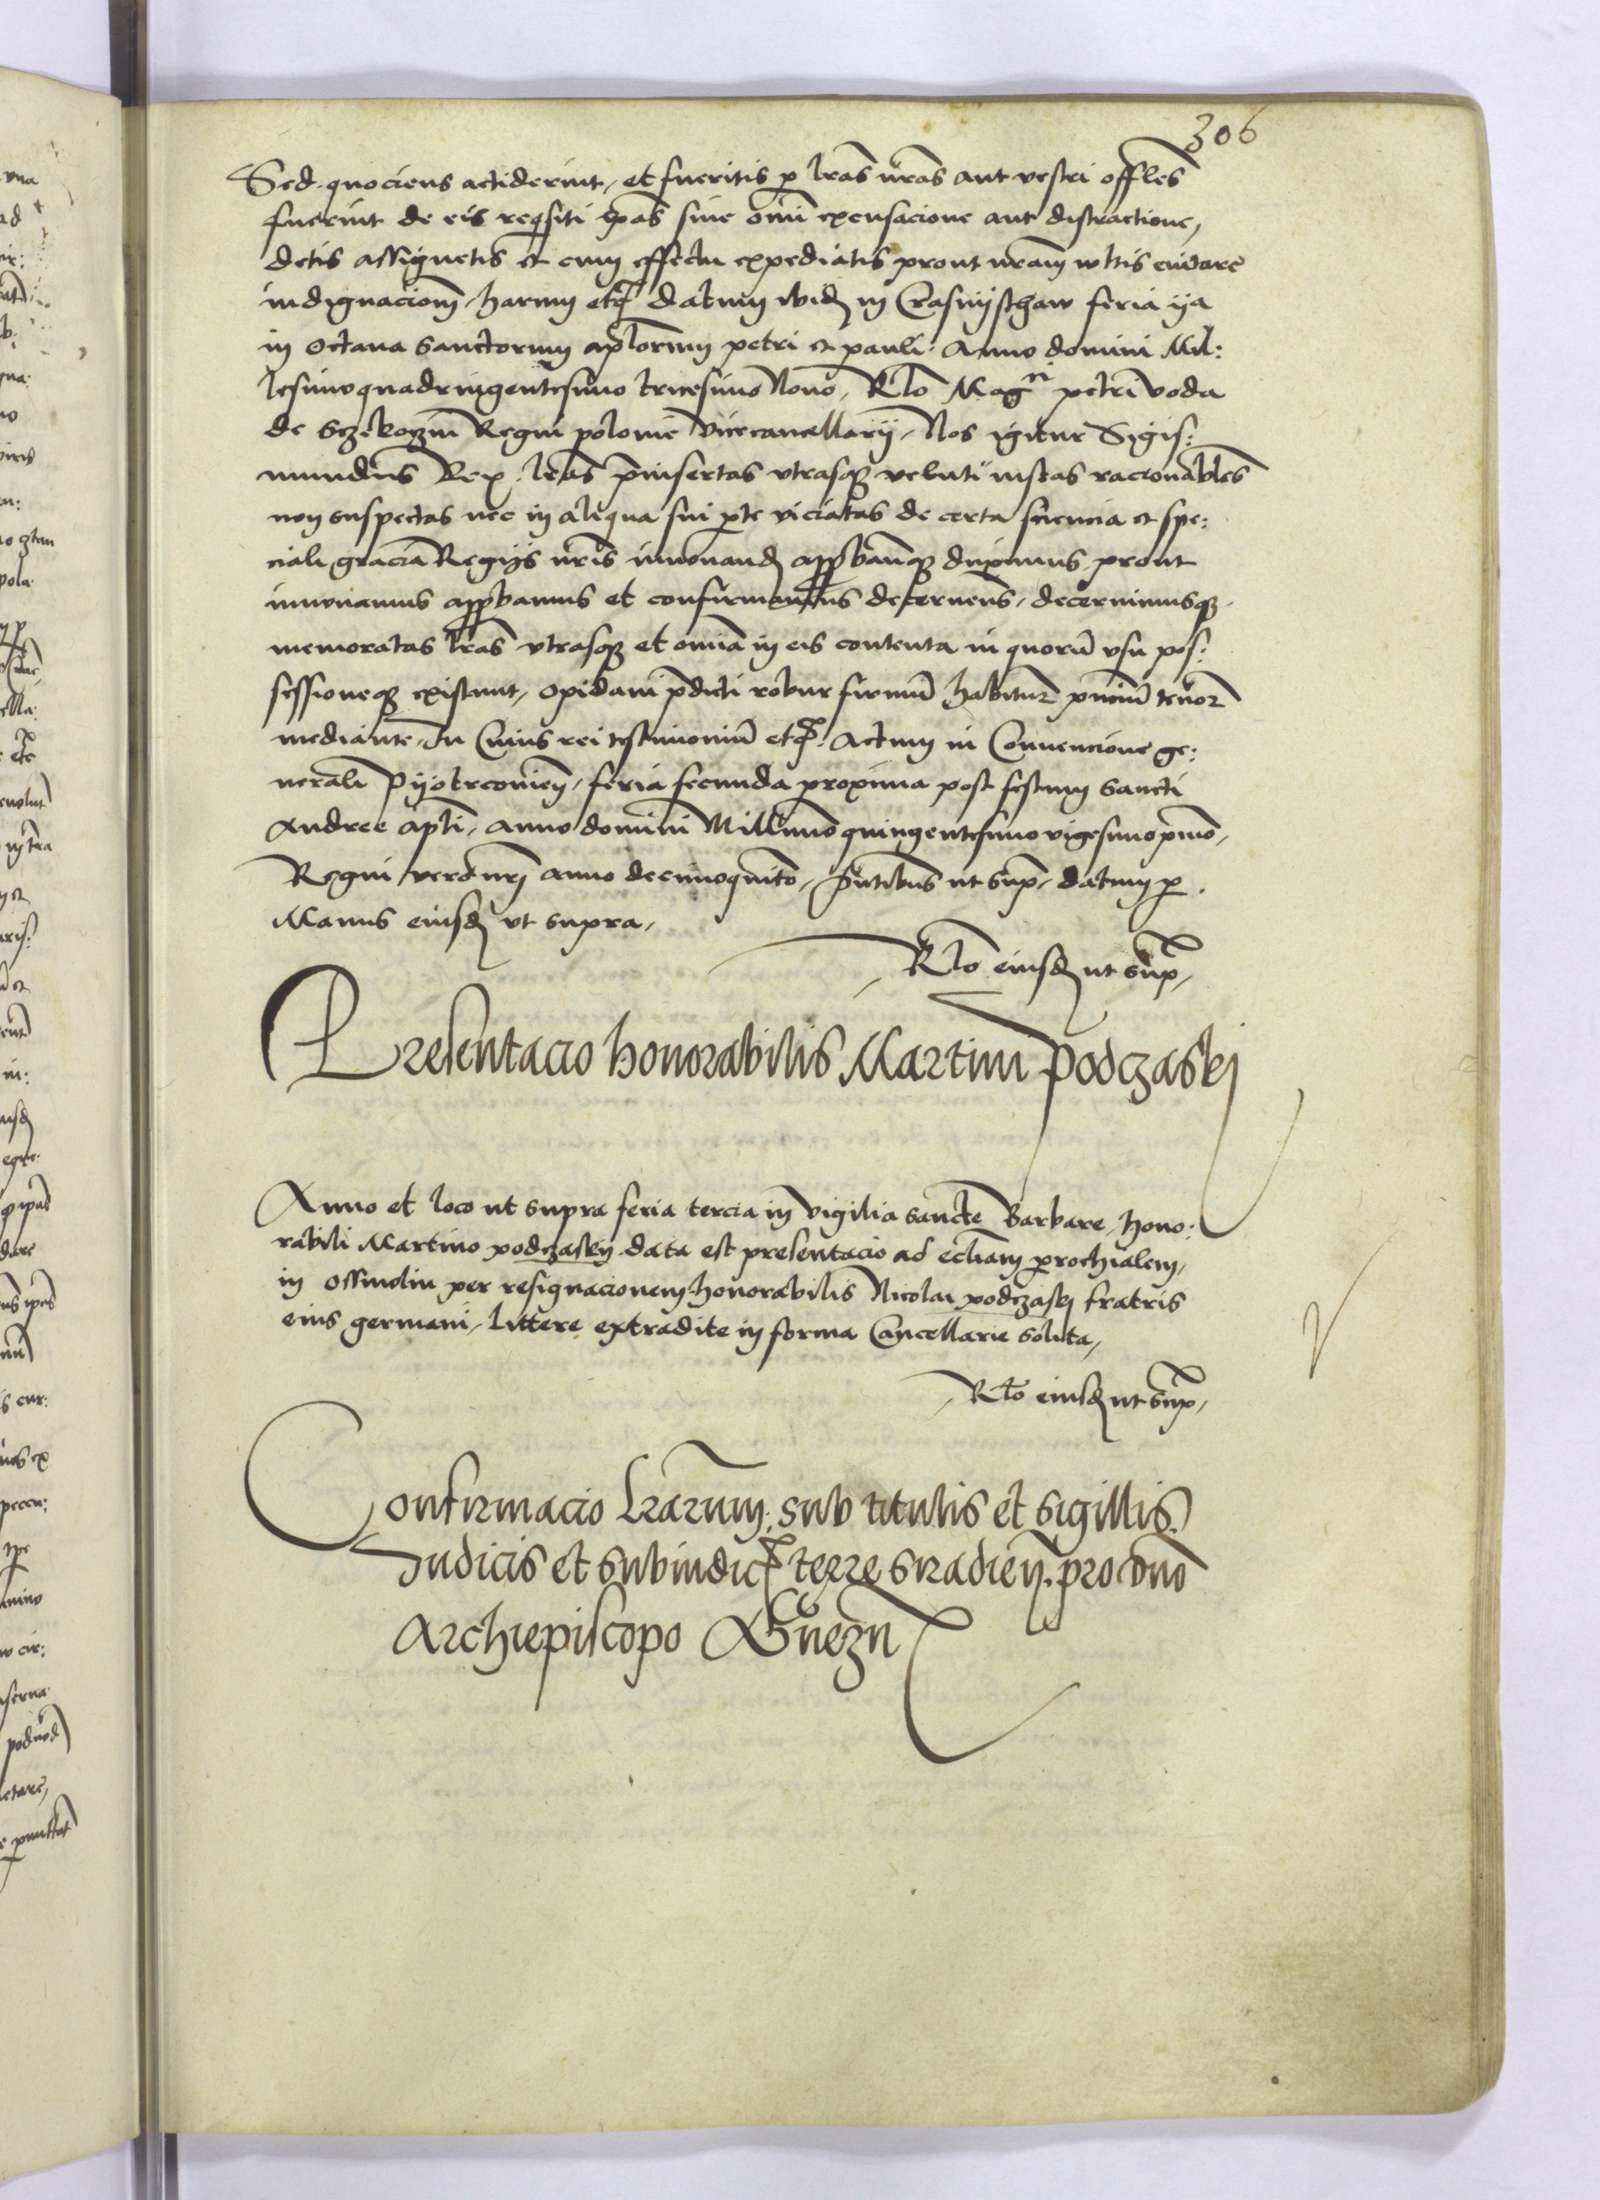 306
Sed quociens acciderint, et fueritis p lras nras aut vestri offles
fuerint de eis reqsiti ipas sine omi excusacione aut distractione,
detis assignetis et cum effectu expediatis prout nram wltis euitare
indignacionem, harum etc datum ibidem in Crasnijsthaw feria ija
in octaua sanctorum aplorum petri et pauli. Anno domini Mil:
lesimoquadringentesimo tricesimo Nono, Rlo Magci petri voda
de Sczekoczini Regni polonie Vicecancellarij, Nos igitur Sigis:
mundus Rex lras pinsertas vtrasqz veluti iustas racionables
non suspectas nec in aliqua sui pte viciatas de certa sciencia et spe:
ciali gracia Regijs nris innouand appbandqz duximus prout
innouamus appbamus et confirmamus decernens, decernimusqz
memoratas lras vtrasqz et omia in eis contenta in quoru vsu pos:
sessioneqz existunt, opidani pdicti robur firmu habitur pnciu tenor
mediante, In Cuius rei testimoniu etc. Actum in Conuencione ge:
nerali Pijotrconien, feria secunda proxima post festum sancti
Andree apli, anno domini Millimo quingentesimo vigesimo pmo,
Regni vero nri anno decimoquinto, Pntibus ut sup, datum p
Manus eiusd vt supra,
Rlo eiusd ut sup,
Presentacio honorabilis Martini podczaskj
Anno et loco ut supra feria tercia in vigilia sancte Barbare, hono:
rabili Martino podczaskj data est presentacio ad eccliam prochialem,
in Ossmolin per resignacionem honorabilis Nicolai podczaskj fratris
eius germani, littere extradite in forma Cancellarie solita,
Rlo eiusd ut sup,
Confirmacio lrarum sub titulis et sigillis
Judicis et subiudic terre Siradien. pro dno
Archiepiscopo Gnezn